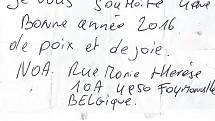 je vous souhaite une
Bonne année 2016
de poix et de joie.
NOA. Rue Marie thérèse
10A 4850
BELGIQUE.